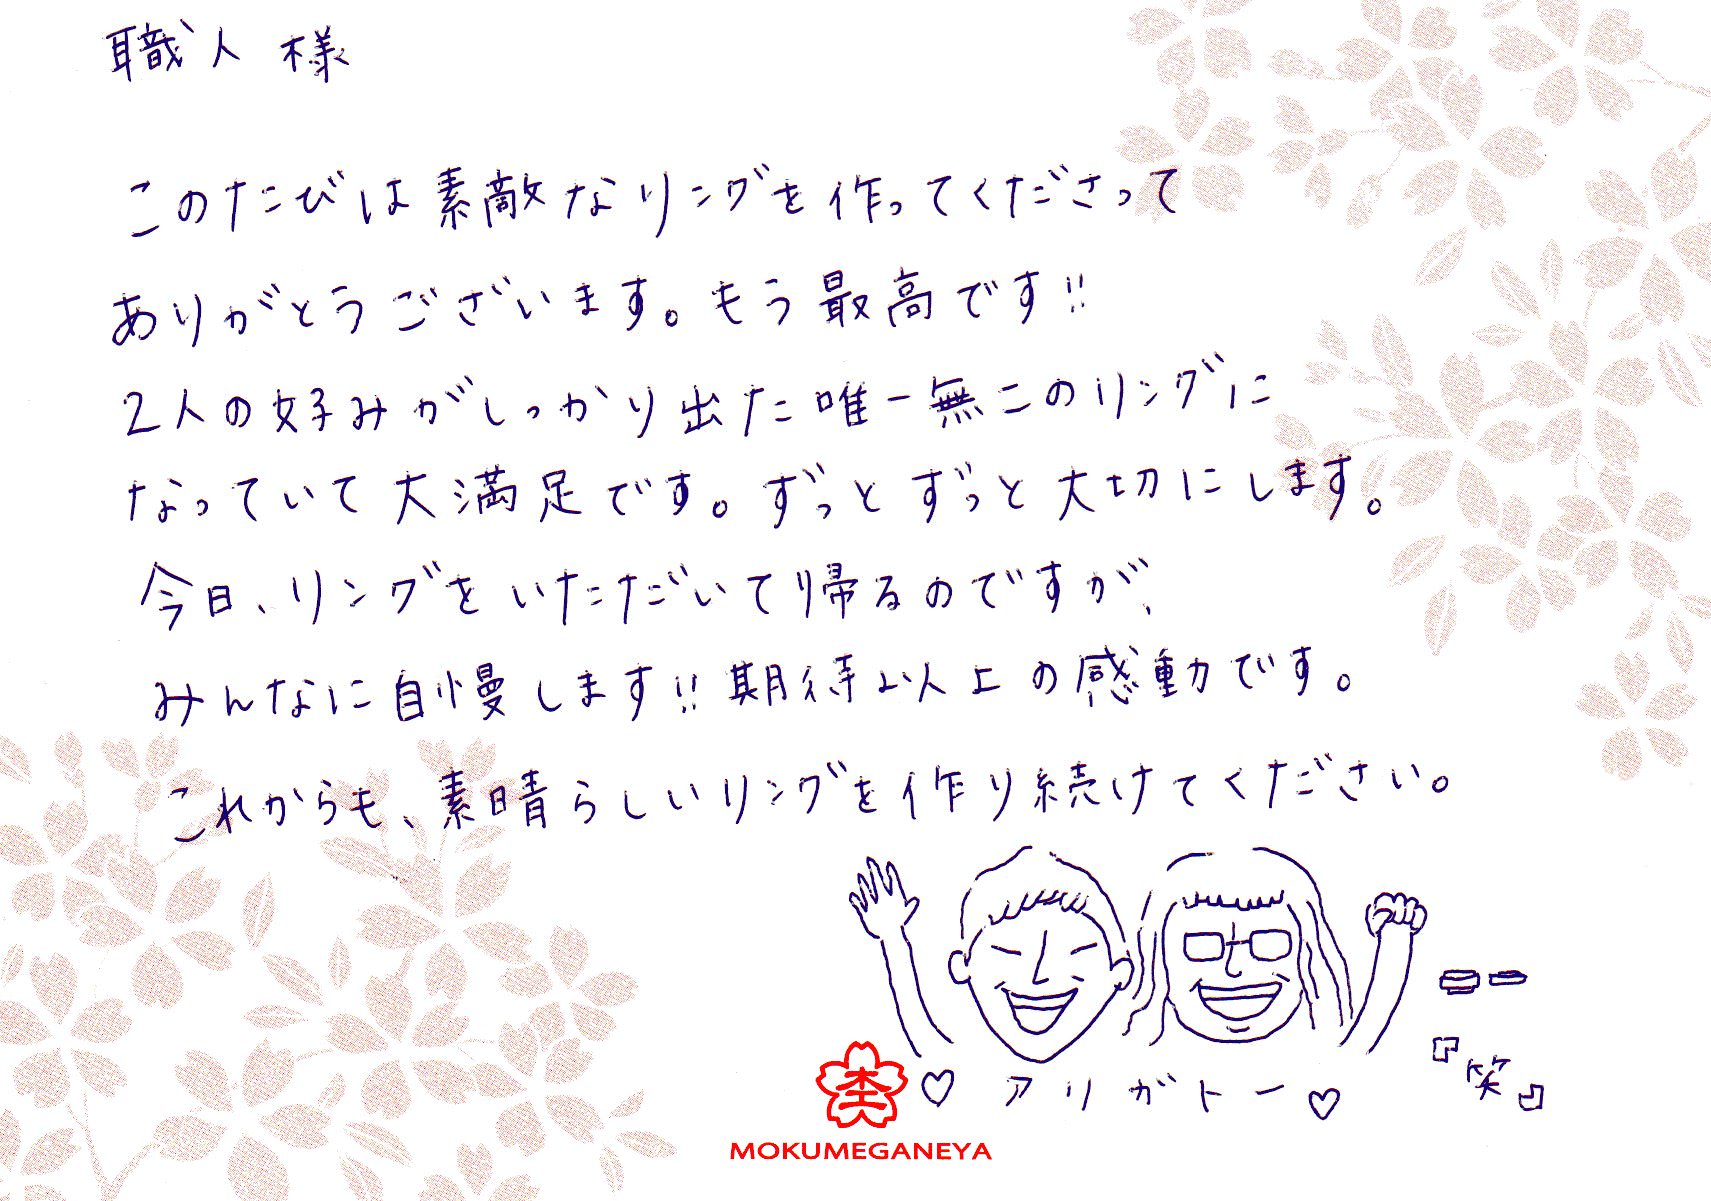 職人 様
このたびは素敵なリングを作ってくださって
ありがとうございます。もう最高です!!
2人の好みがしっかり出た唯一無二のリングに
なっていて大満足です。ずっとずっと大切にします。
今日、リングをいただいて帰るのですが、
みんなに自慢します!!期待以上の感動です。
これからも、素晴らしいリングを作り続けてください。
♡ アリガトー ♡
『笑』
MOKUMEGANEYA